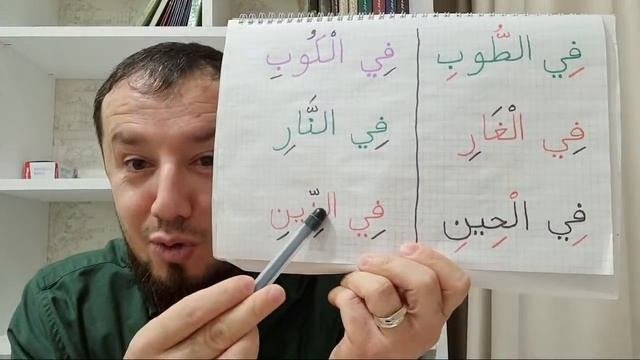 فِي الطُّوبِ
فِي الْغَارِ
فِي الْحِينِ
فِي الْكُوبِ
فِي النَّارِ
فِي الزِّينِ